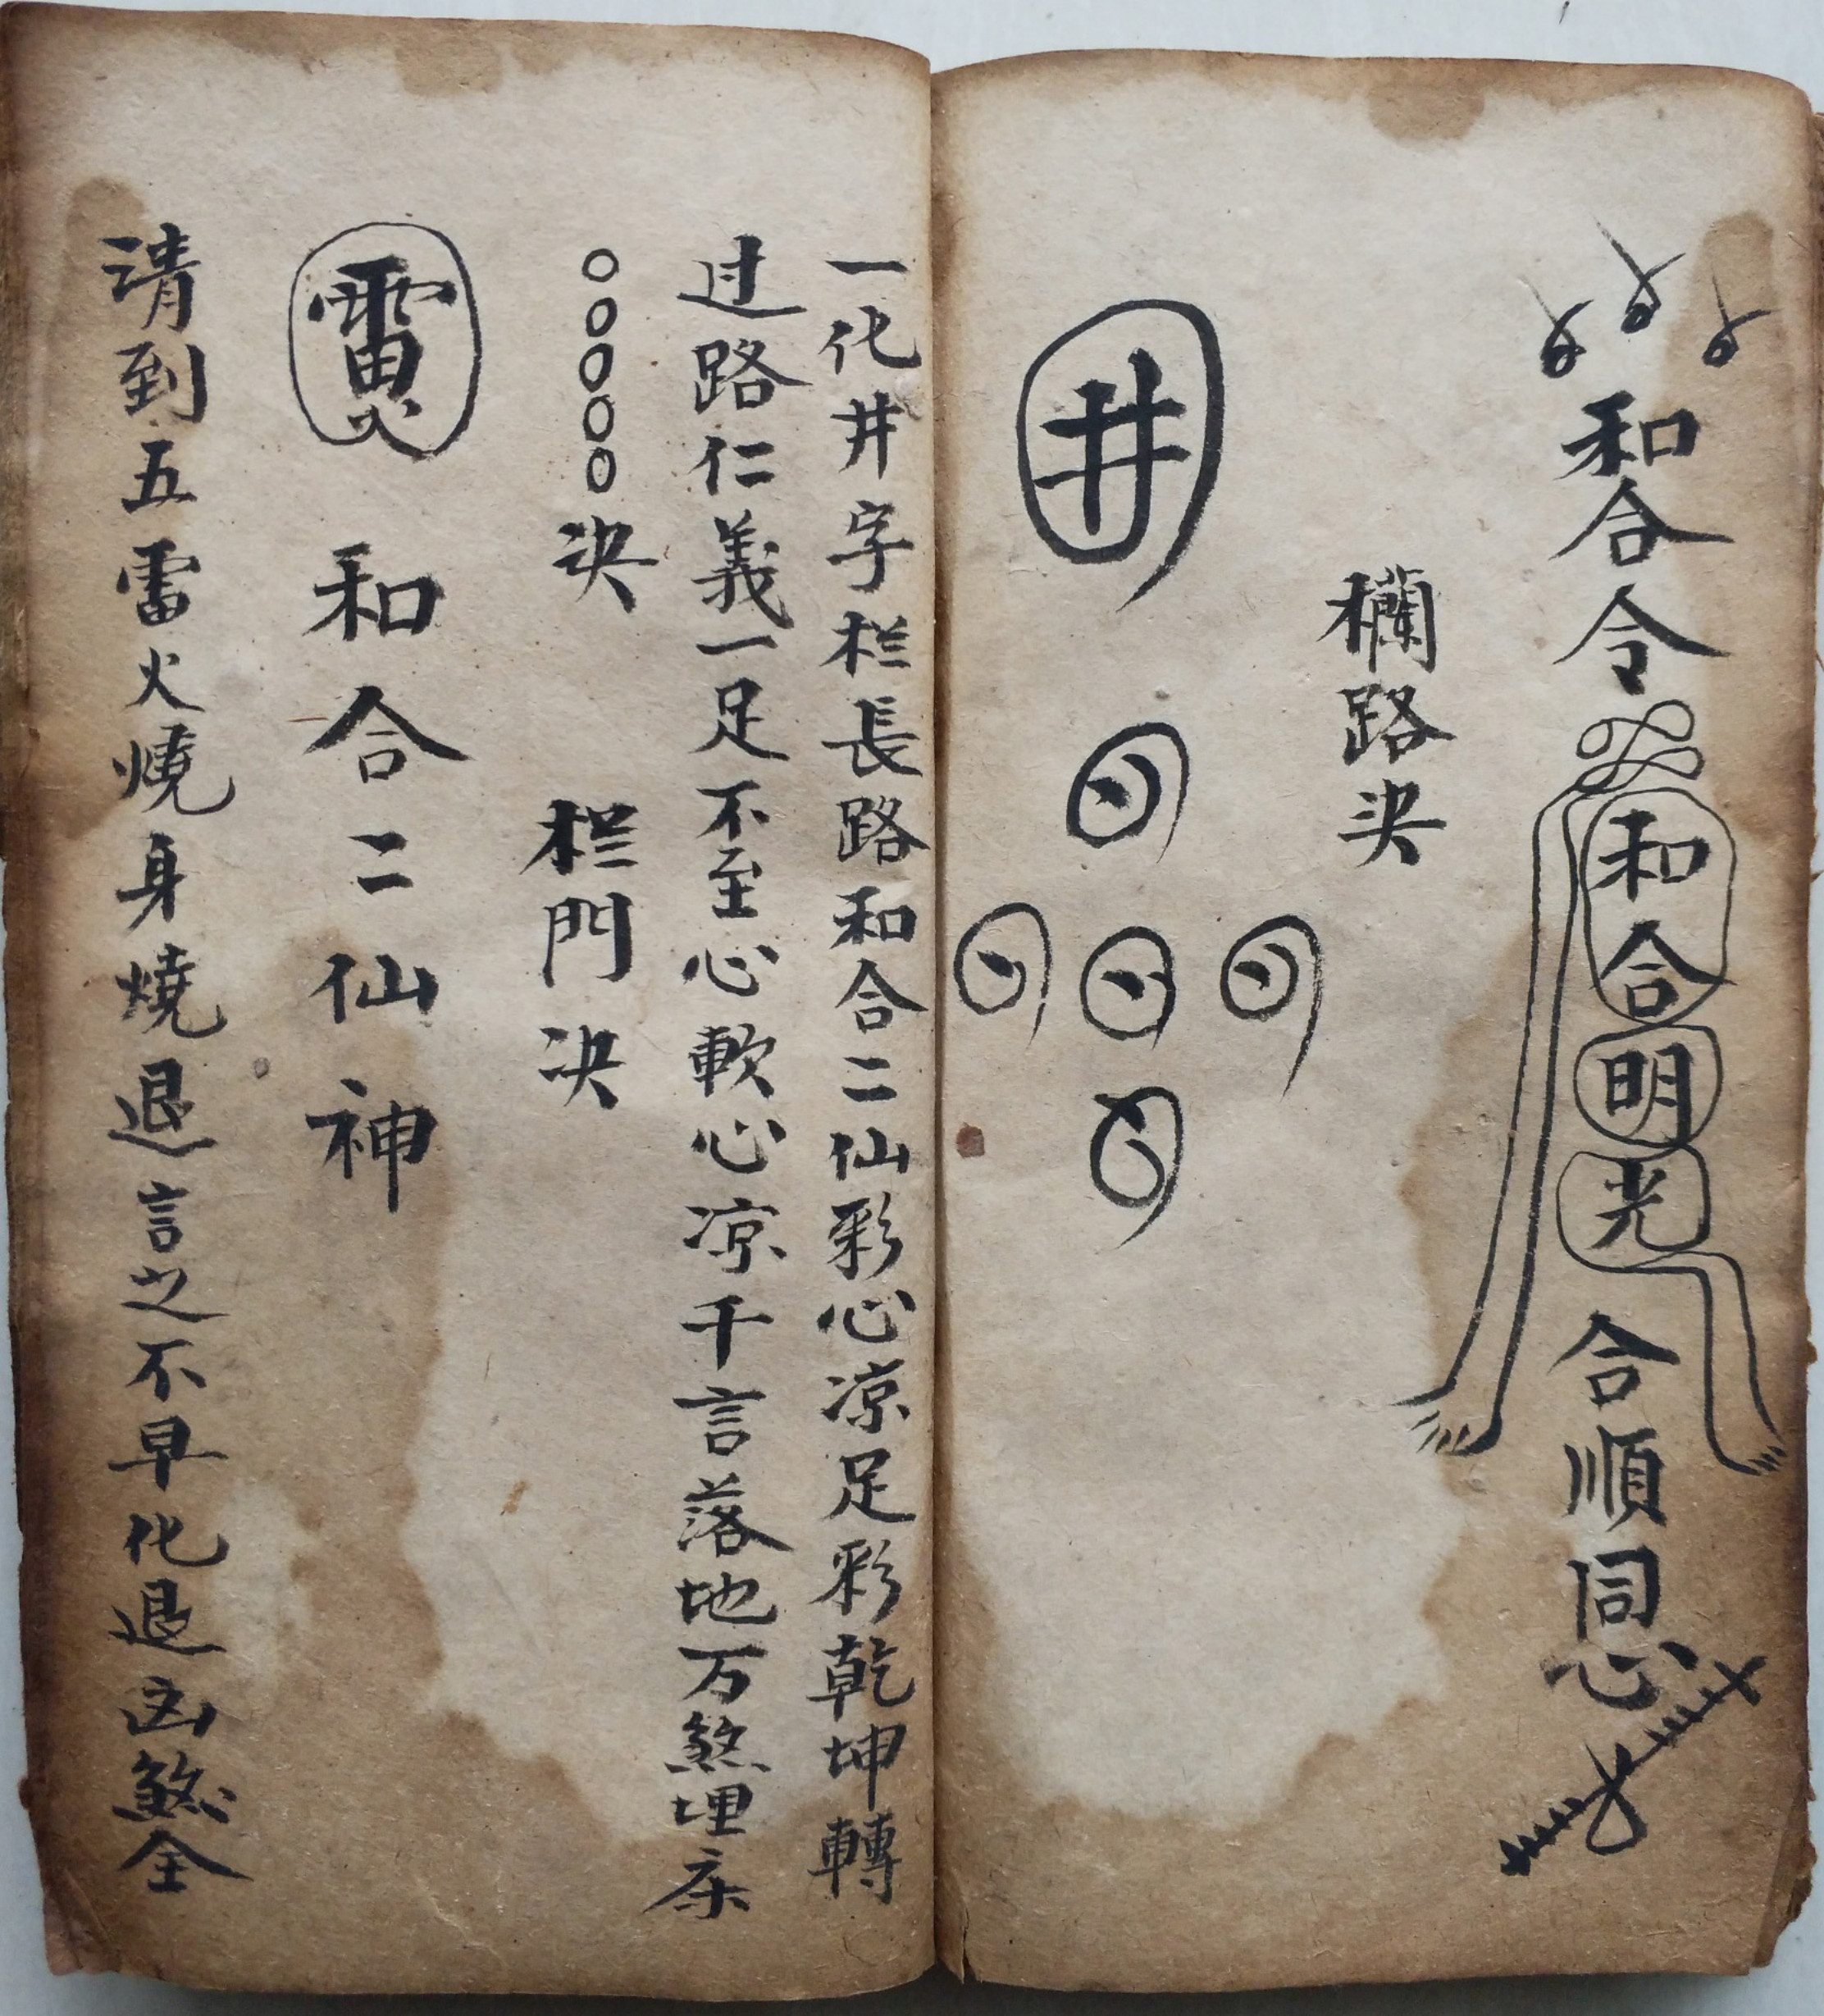 和合令和合明光合順同心
欄路决
井
一化井字栏長路和合二仙彩心凉足彩乾坤轉
过路仁義一足不至心軟心凉千言落地万煞埋床
决 栏門决
雷火 和合二仙神
清到五雷火燒身燒退言之不早化退凶煞全